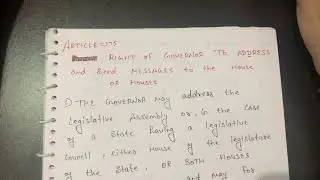 ARTICLE 175
RIGHT OF GOVERNOR TO ADDRESS
and Send MESSAGES to the House
OR HOUSES
1) THE GOVERNOR may address the
Legislative Assembly or, in the case
of a State having a legislative
Council, either House of the legislature
of the State, OR BOTH HOUSES
and may for